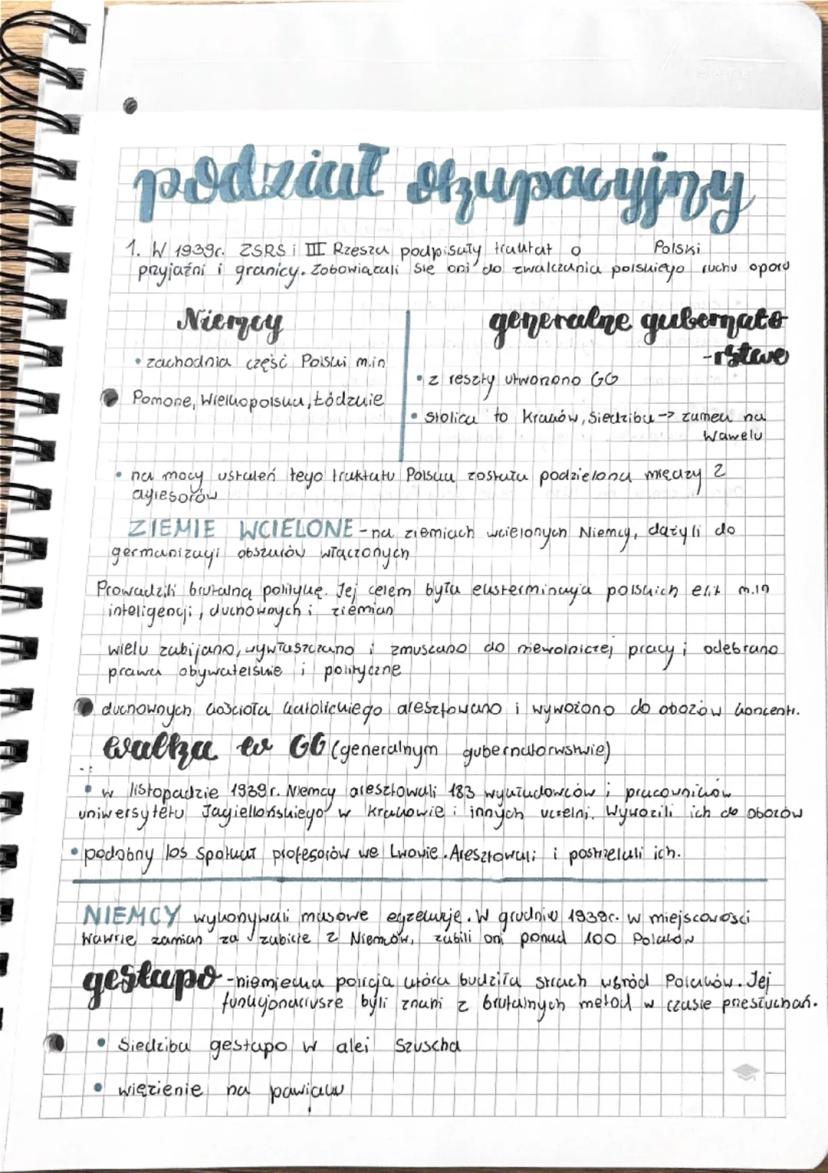 podział okupacyjny
1. W 1939r. ZSRS i III Rzesza podpisały traktat o Polski
przyjaźni i granicy. Zobowiązali się oni do zwalczania polskiego ruchu oporu
Niemcy
• zachodnia część Polski m.in
Pomorze, Wielkopolska, Łódzkie
generalne gubernato
-rstwo
• z reszty utworzono GG
• stolica to Kraków, Siedziba -> zamek na
Wawelu
• na mocy ustaleń tego traktatu Polska została podzielona między 2
agresorów
ZIEMIE WCIELONE - na ziemiach wcielonych Niemcy, dążyli do
germanizacji obszarów włączonych
Prowadzili brutalną politykę. Jej celem była eksterminacja polskich elit m.in
inteligencji, duchownych i ziemian
wielu zabijano, wywłaszczano i zmuszano do niewolniczej pracy i odebrano
prawa obywatelskie i polityczne
duchownych kościoła katolickiego aresztowano i wywożono do obozów koncentr.
walka w GG (generalnym gubernatorwstwie)
• w listopadzie 1939r. Niemcy aresztowali 183 wykładowców i pracowników
uniwersytetu Jagiellońskiego w Krakowie i innych uczelni. Wywozili ich do obozów
• podobny los spotkał profesorów we Lwowie. Aresztowali i postrzelali ich.
NIEMCY wykonywali masowe egzekucje. W grudniu 1939r. w miejscowości
Wawrze zamian za zabicie 2 Niemców, zabili oni ponad 100 Polaków
gestapo - niemiecka policja która budziła strach wśród Polaków. Jej
funkcjonariusze byli znani z brutalnych metod w czasie przesłuchań.
• Siedziba gestapo w alei Szucha
• więzienie na pawiaku